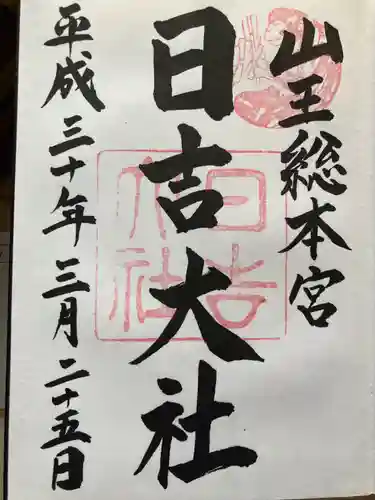 山王総本宮
日吉大社
平成三十年三月二十五日
日吉大社